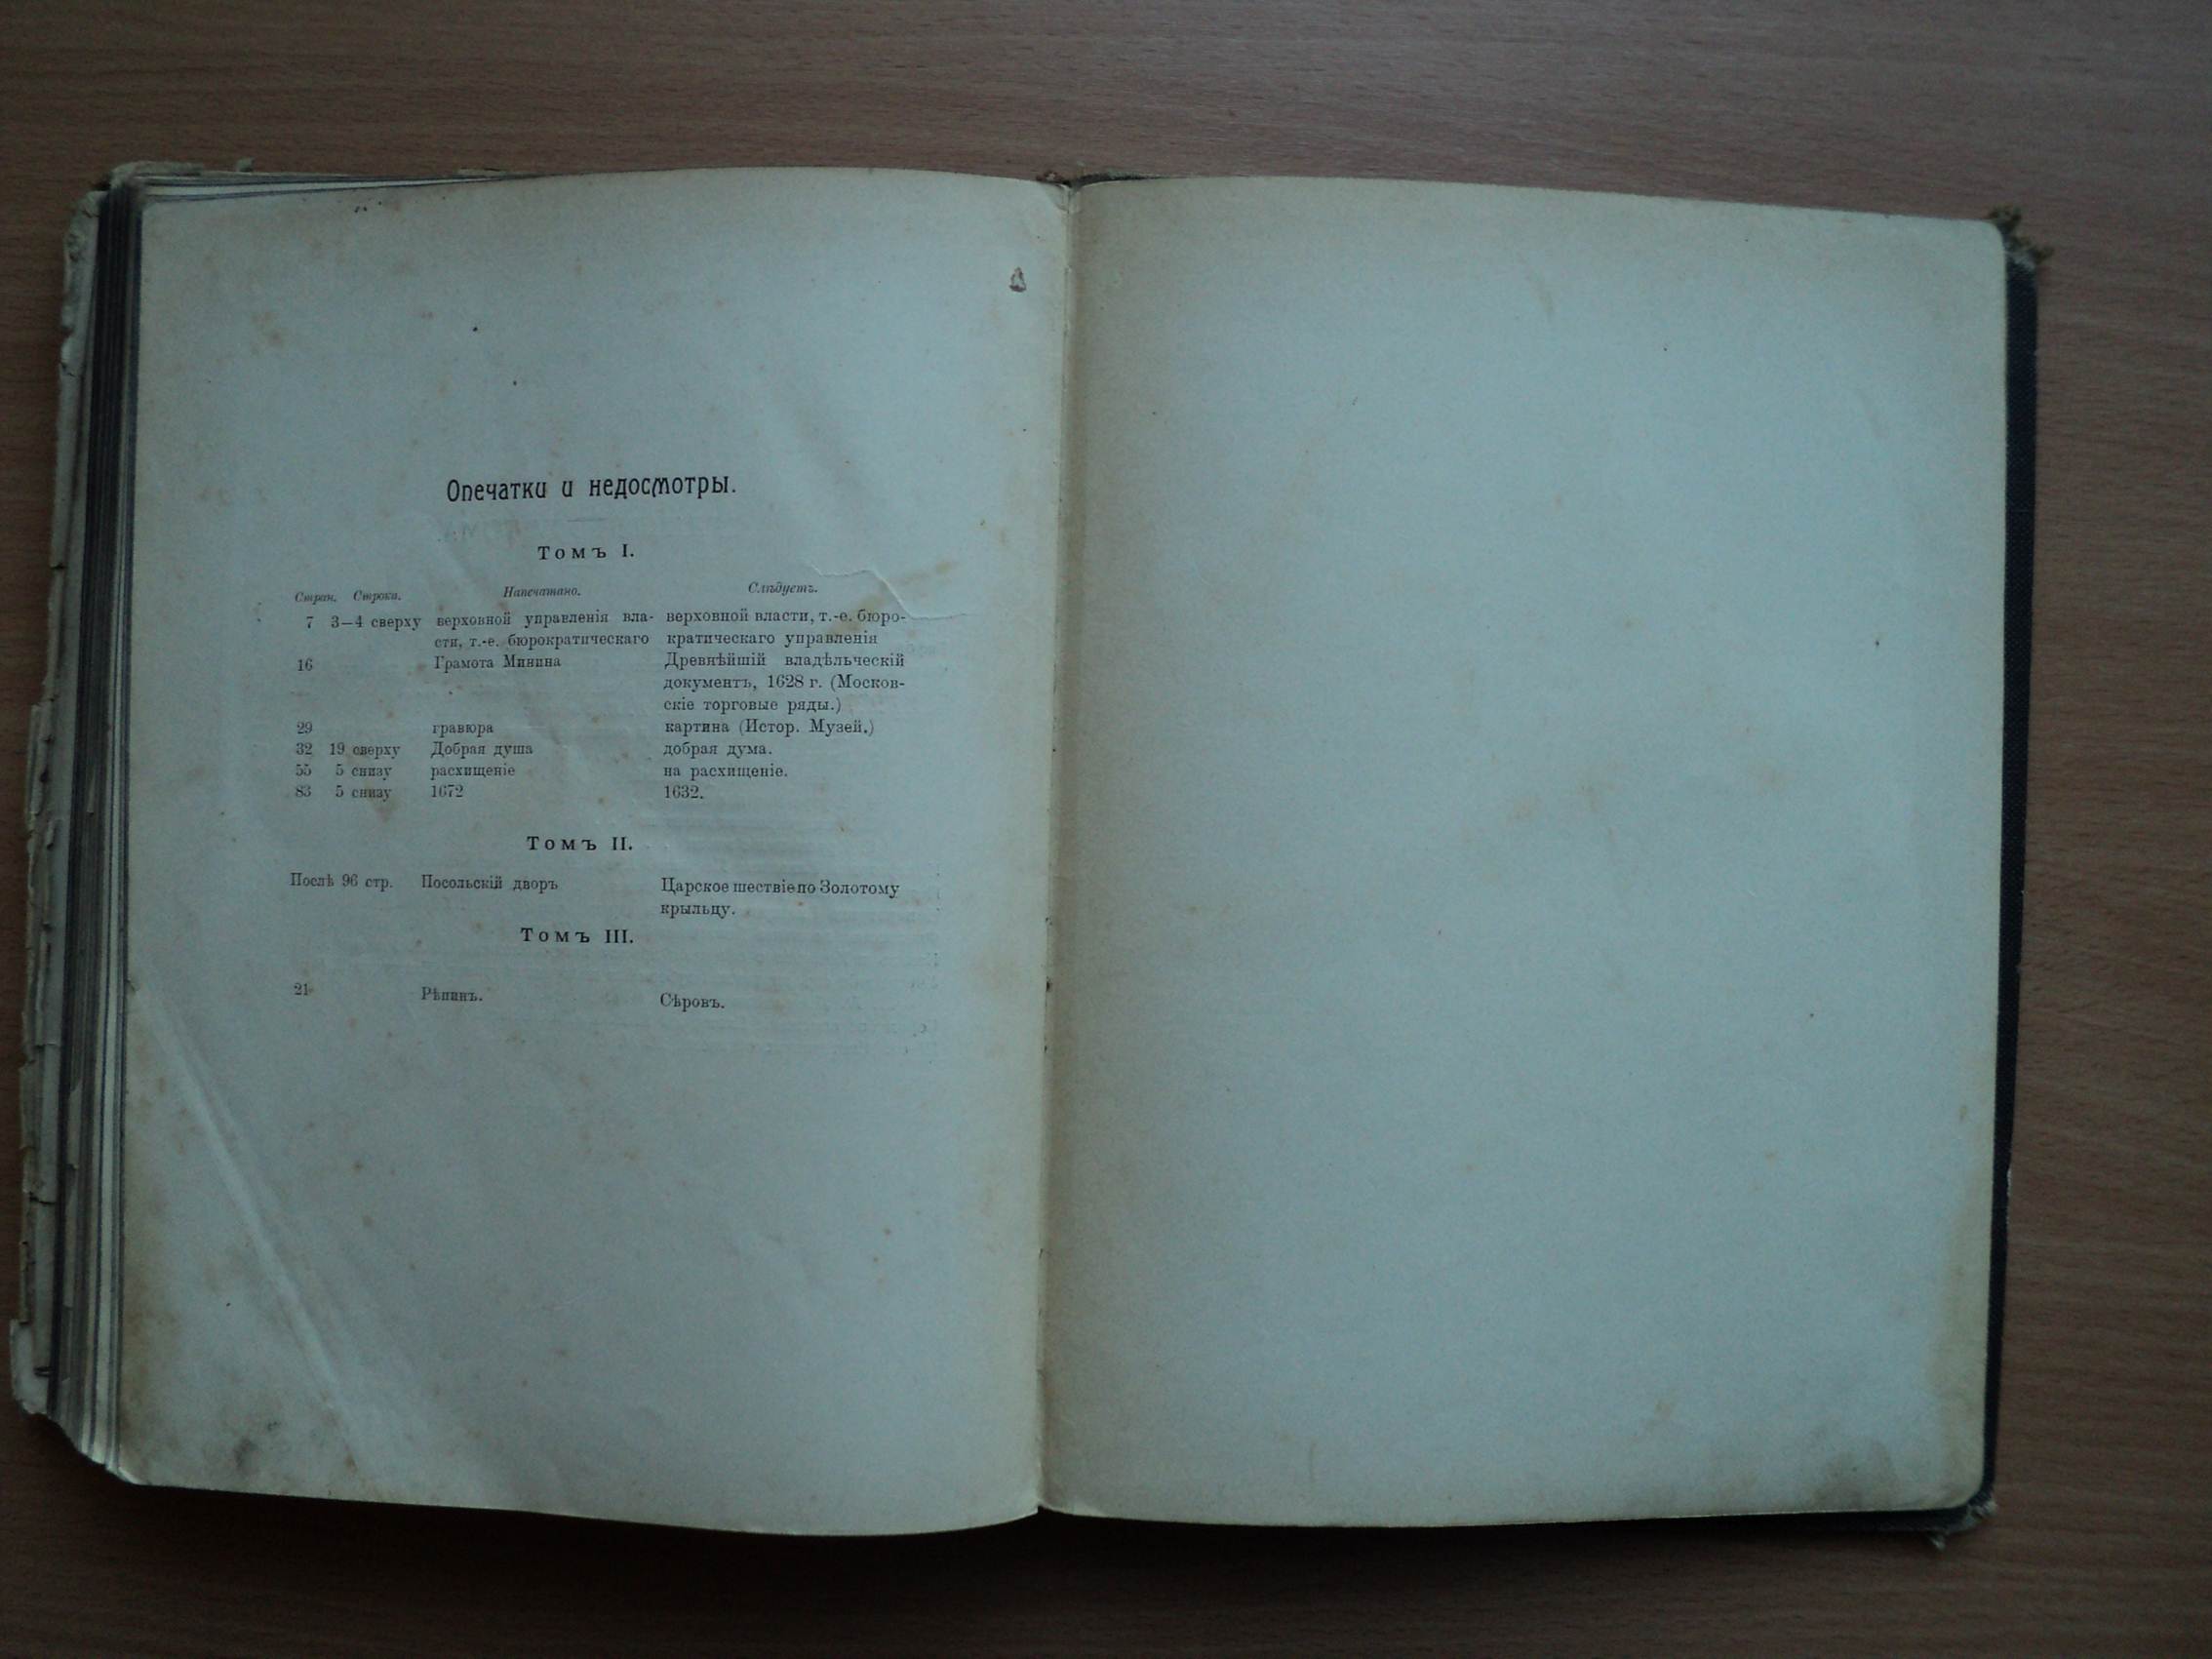 Опечатки и недосмотры.
Томъ I.
Стран. Строка. Напечатано. Слѣдуетъ.
7 3—4 сверху верховной управленія вла- верховной власти, т.-е. бюро-
сти, т.-е. бюрократическаго кратическаго управленія
16 Грамота Минина Древнѣйшій владѣльческій
документъ, 1628 г. (Москов-
скіе торговые ряды.)
29 гравюра картина (Истор. Музей.)
32 19 сверху Добрая душа добрая дума.
55 5 снизу расхищеніе на расхищеніе.
83 5 снизу 1672 1632.
Томъ II.
Послѣ 96 стр. Посольскій дворъ Царское шествіе по Золотому
крыльцу.
Томъ III.
21 Рѣпинъ. Сѣровъ.